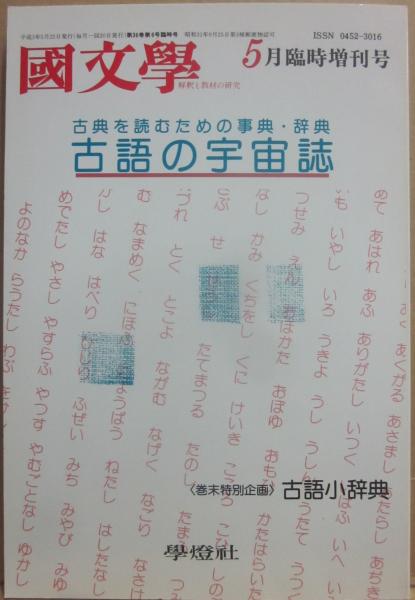 平成3年5月25日発行(毎月一回20日発行)第36巻第6号臨時号 昭和31年6月25日第3種郵便物認可
ISSN 0452-3016
國文學
解釈と教材の研究
5月臨時増刊号
古典を読むための事典・辞典
古語の宇宙誌
めて あはれ あふ ありがたし いつく
いも いやし いろ うきよ うし
つせみ えん おほかた おぼゆ おもひ
なし かみ くちをし くに けいき こころ
とぶ せ
たてまつる たのし たまし
づれ とく とこよ ながむ なげく なごり なさけ
む なまめく にほふ
ねたし はしたなし
がし はな はべり
ふぜい みち みやび みゆ
めでたし やさし やすらふ やつす やむごとなし ゆかし
よのなか らうたし わぶ をかし
〈巻末特別企画〉古語小辞典
學燈社